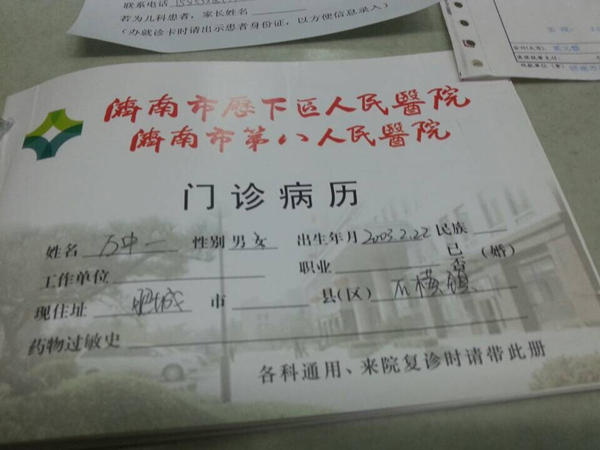 联系电话
若为儿科患者，家长姓名
（办就诊卡时请出示患者身份证，以方便信息录入）
濟南市歷下区人民醫院
濟南市第八人民醫院
门诊病历
姓名 万中一 性别 男 女 出生年月 2003.2.22 民族
工作单位 职业 已否（婚）
现住址 肥城 市 县（区）石横镇
药物过敏史
各科通用、来院复诊时请带此册